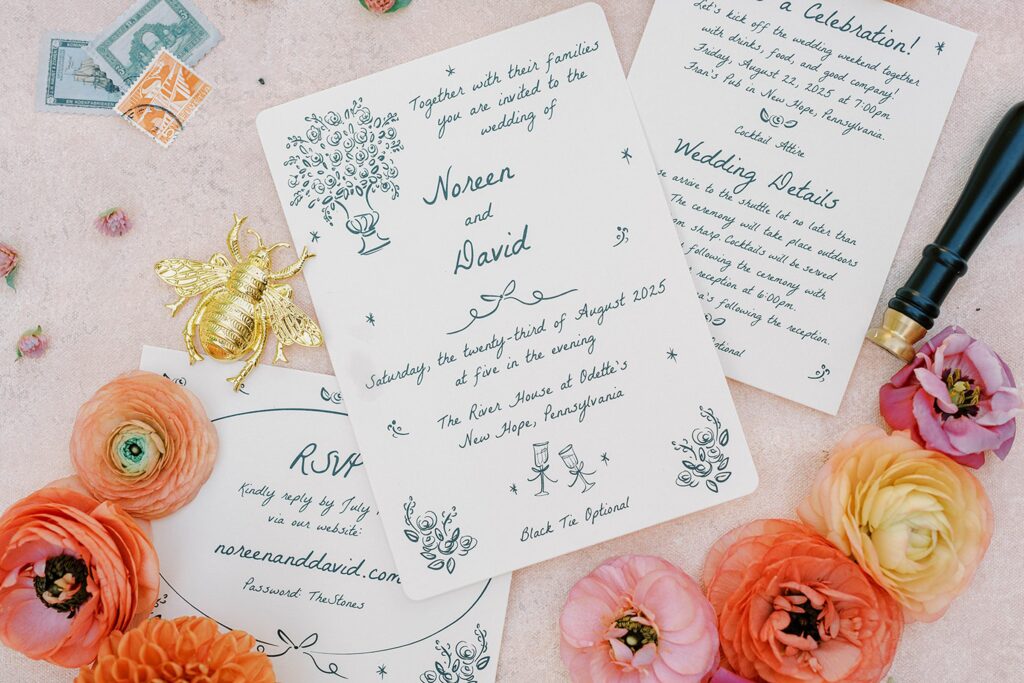 Together with their families
you are invited to the
wedding of
Noreen
and
David
Saturday, the twenty-third of August 2025
at five in the evening
The River House at Odette's
New Hope, Pennsylvania
Black Tie Optional
a Celebration!
Let's kick off the wedding weekend together
with drinks, food, and good company!
Friday, August 22, 2025 at 7:00pm
Fran's Pub in New Hope, Pennsylvania.
Cocktail Attire
Wedding Details
arrive to the shuttle lot no later than
The ceremony will take place outdoors
sharp. Cocktails will be served
following the ceremony with
reception at 6:00pm.
following the reception.
RSVP
Kindly reply by July
via our website:
noreenanddavid.com
Password: TheStones